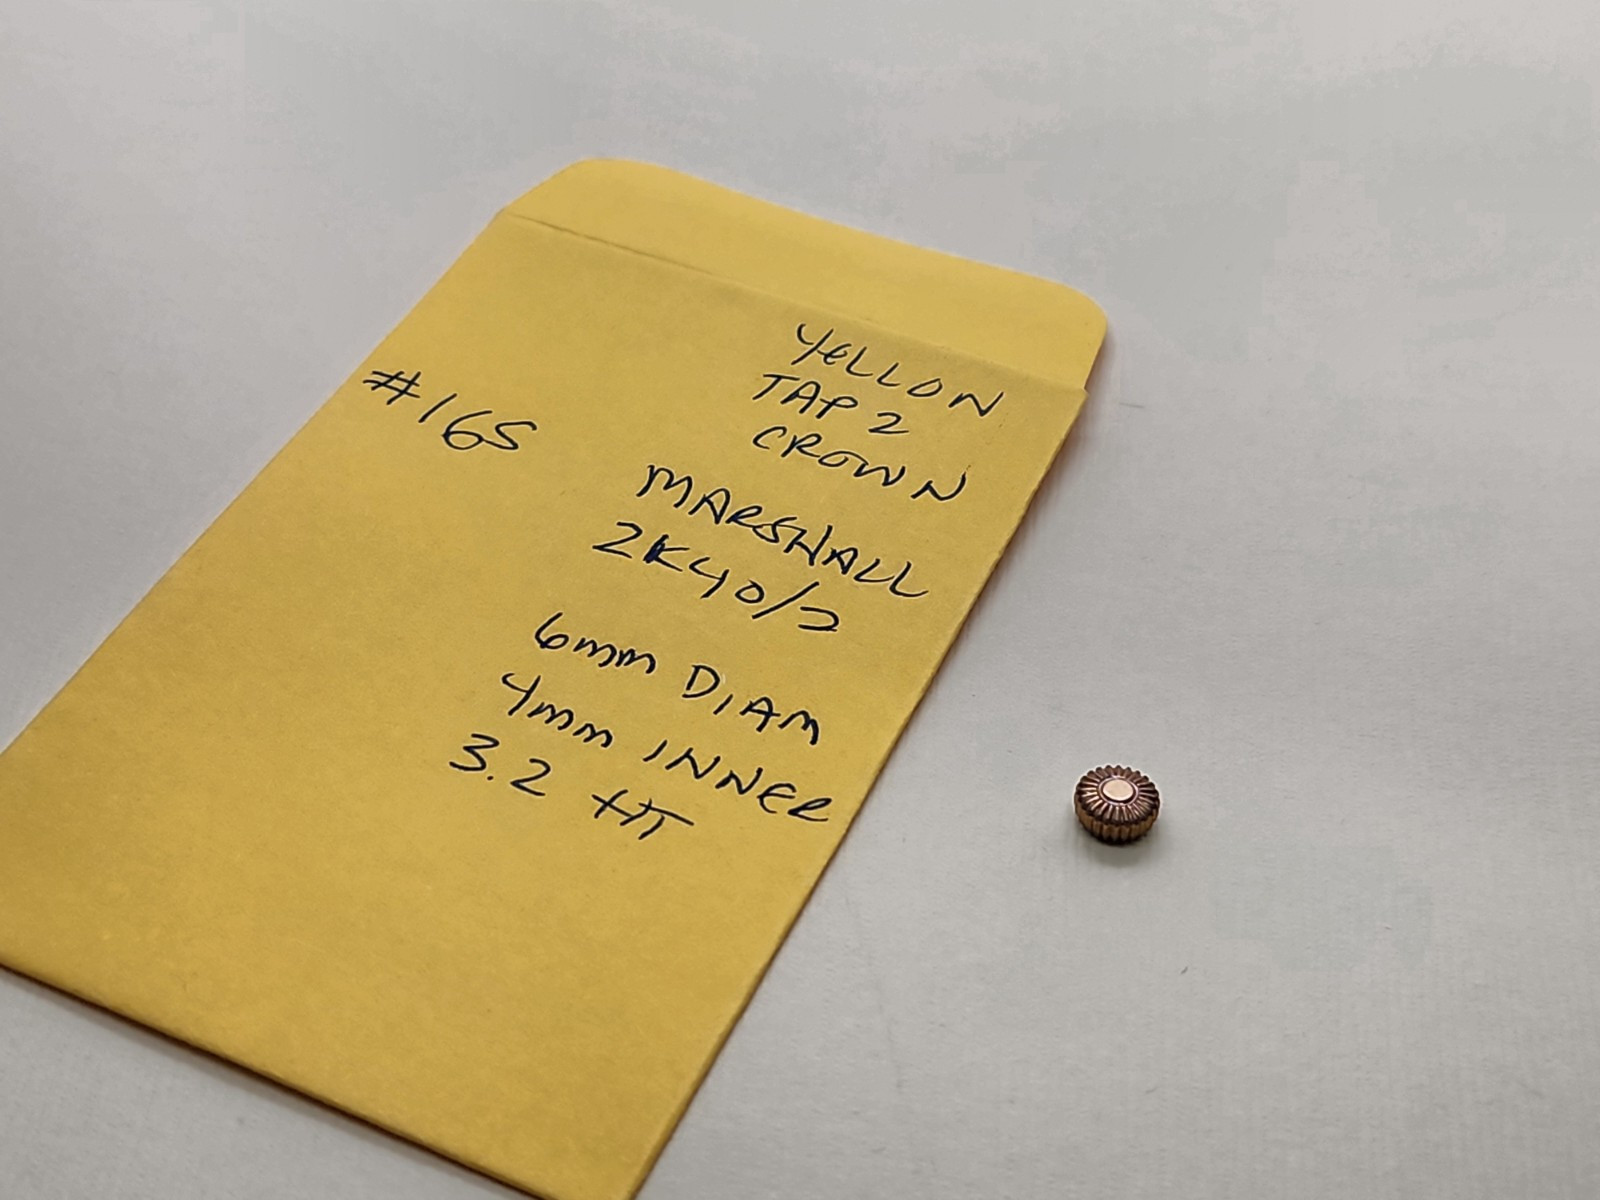 YELLOW
TAP 2
CROWN
#165
MARSHALL
2K40/2
6mm DIAM
4mm INNER
3.2 HT